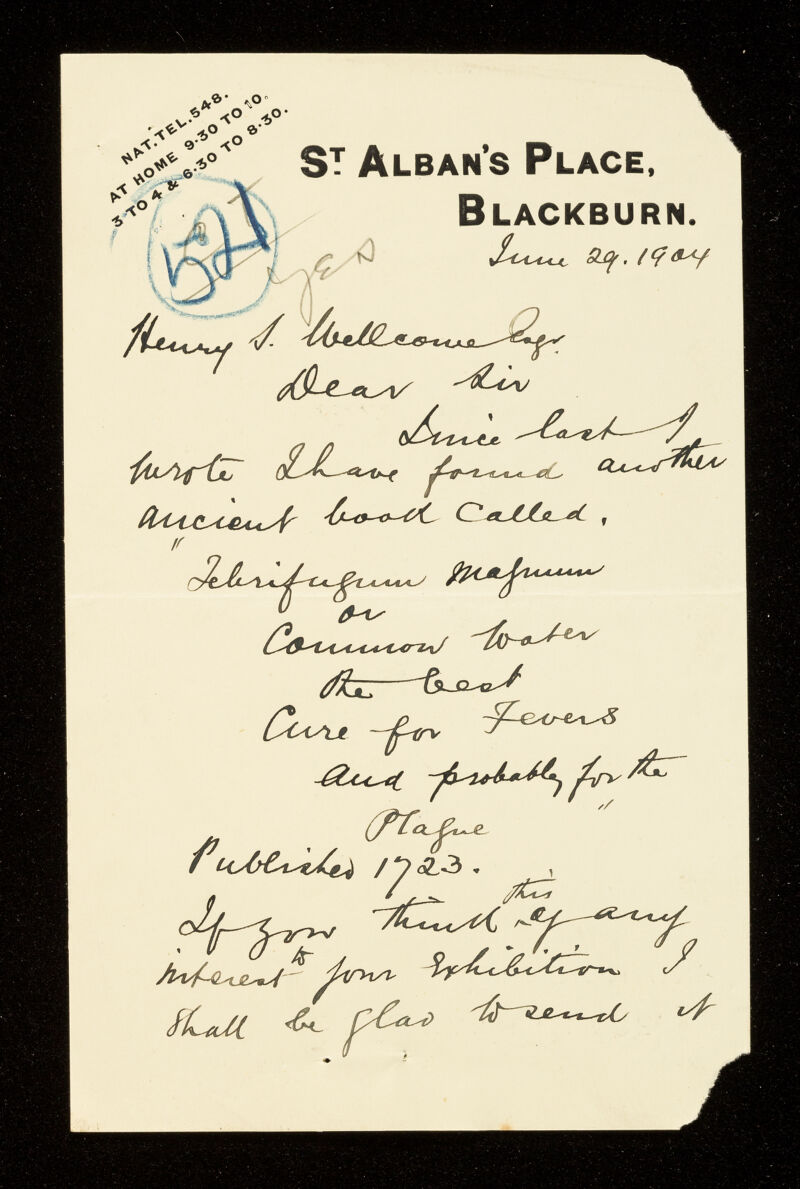 NAT. TEL. 548.
AT HOME 9·30 TO 10.
3 TO 4 & 6·30 TO 8·30.
ST ALBAN'S PLACE,
BLACKBURN.
521
yes
June 29. 1904
Henry S. Wellcome Esqr.
Dear Sir
Since last I
wrote I have found another
ancient book called.
"Febrifugum Magnum
or
Common Water
the best
Cure for Fevers
and probably for the
Plague"
Published 1723.
If you think this of any
interest to your Exhibition I
shall be glad to send it